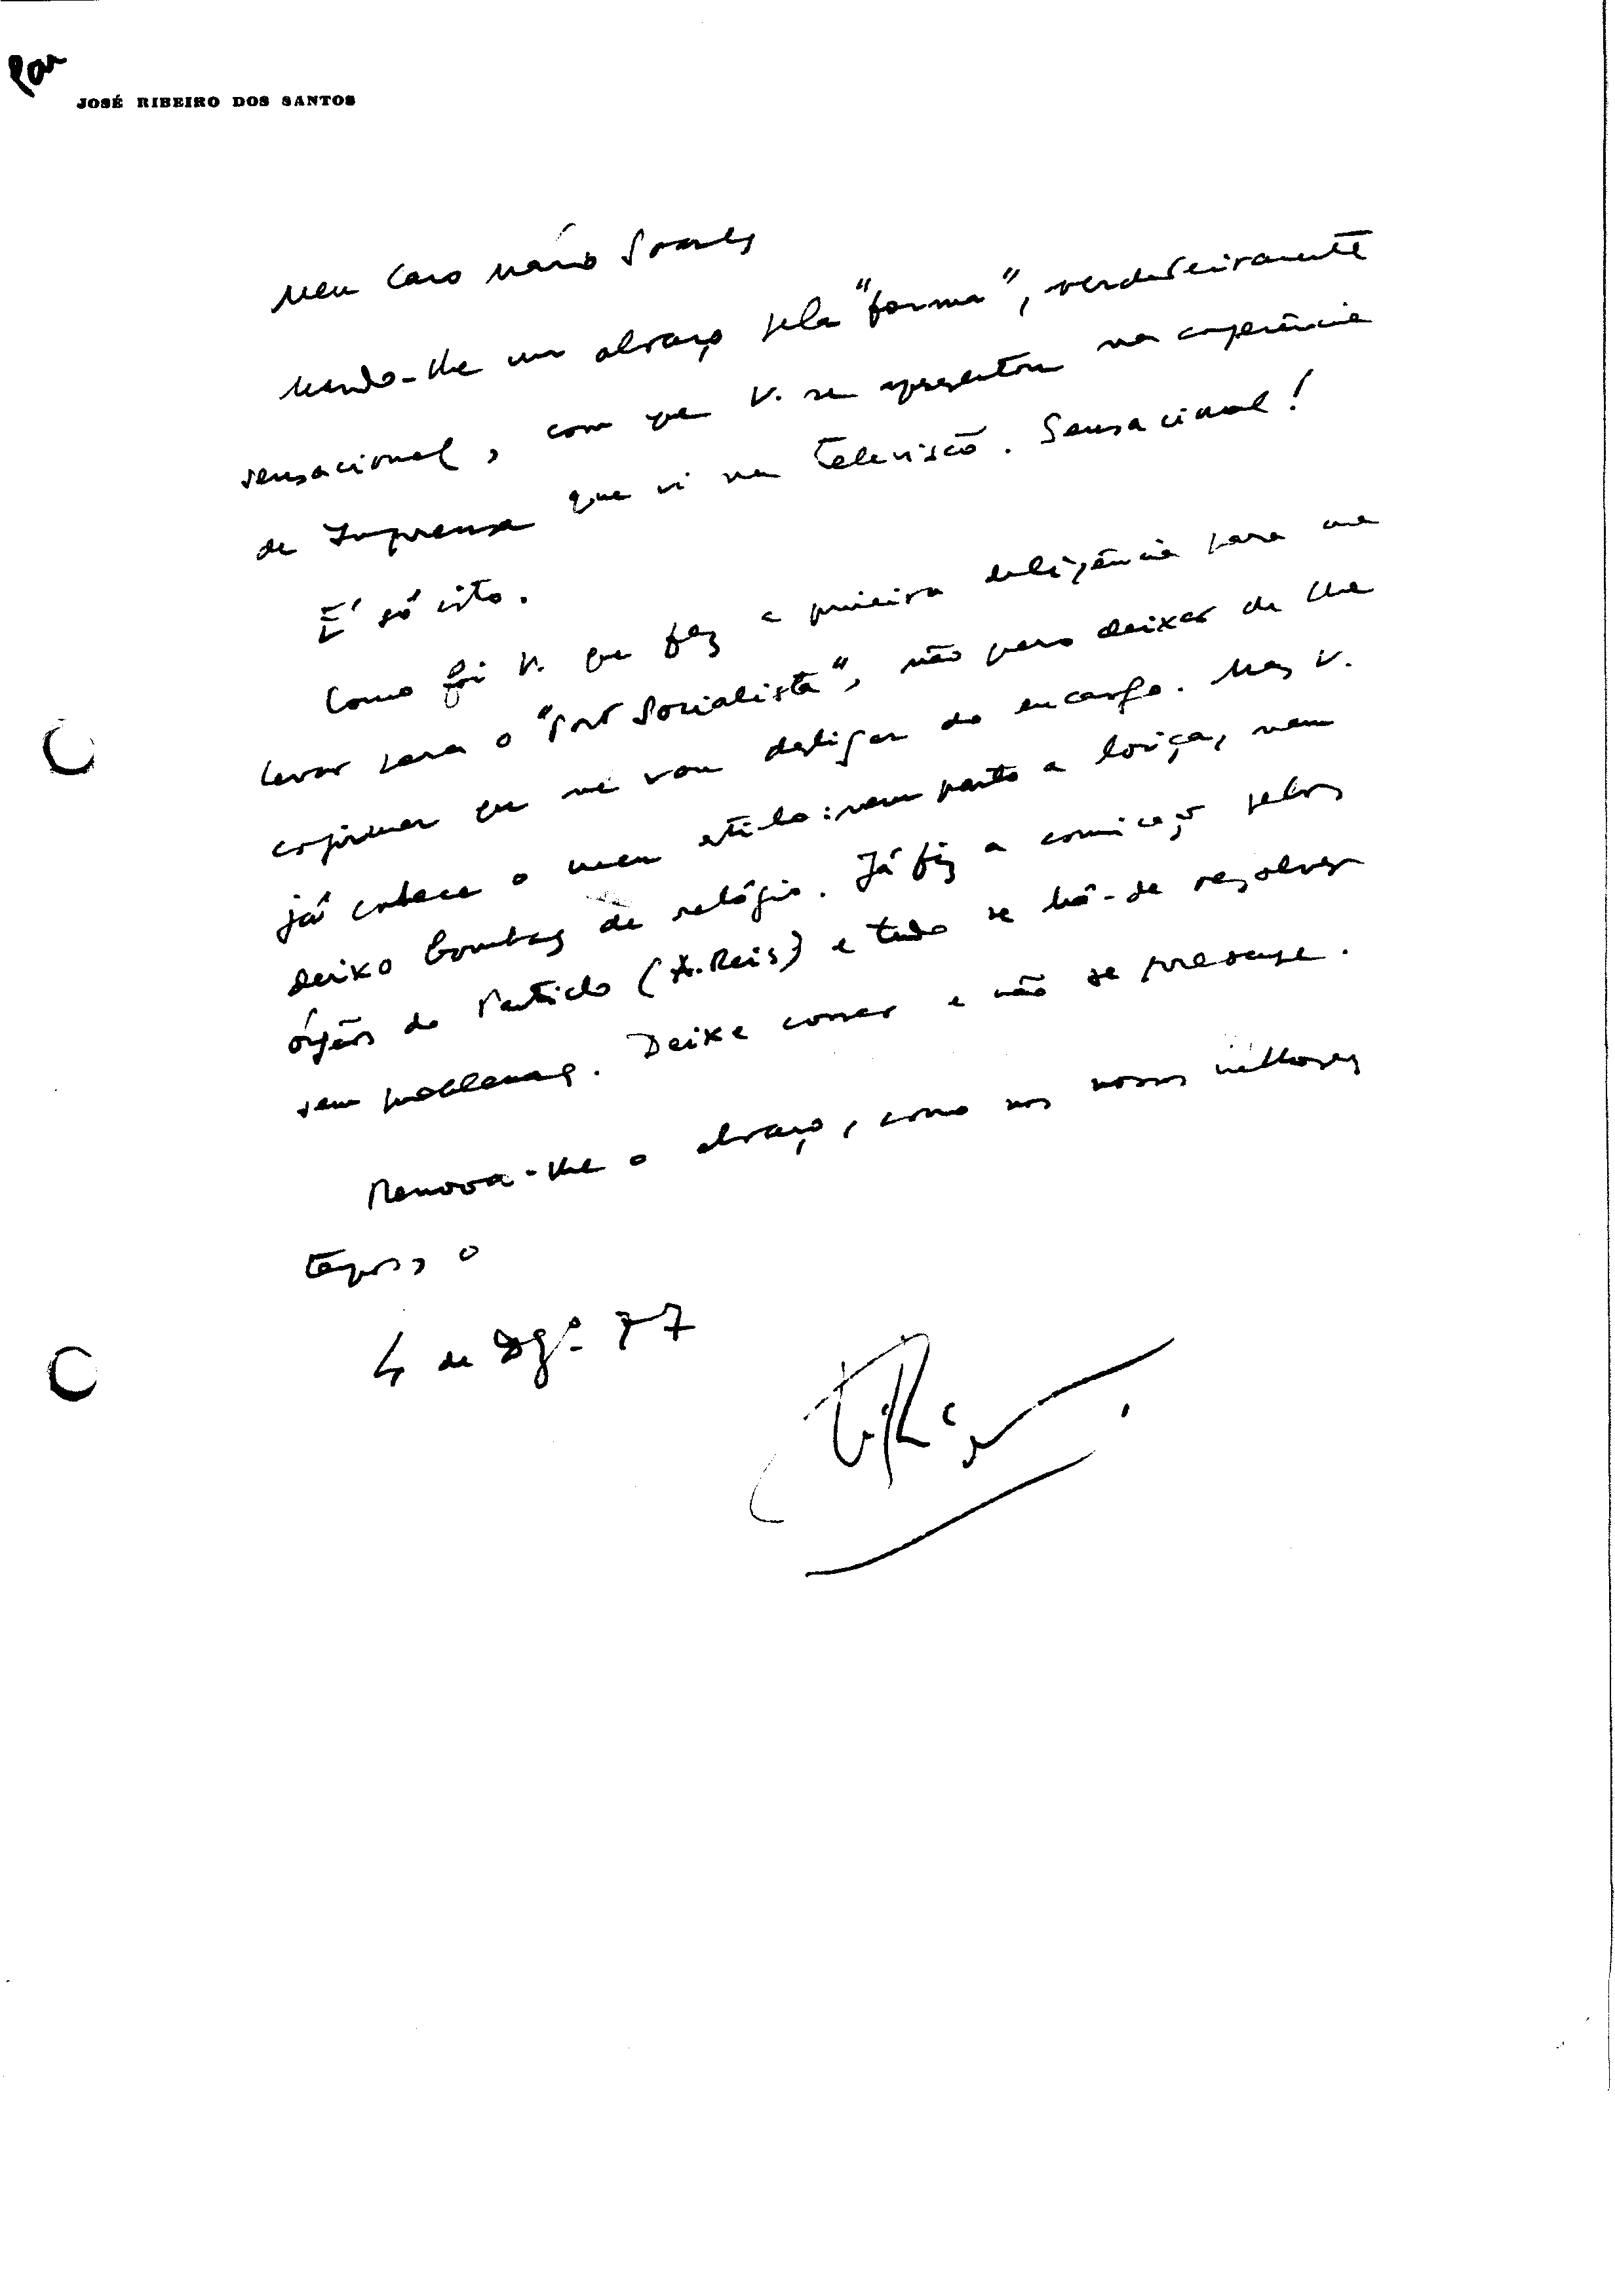 JOSÉ RIBEIRO DOS SANTOS
Meu Caro Mário Soares
Mando-lhe um abraço pela "forma", verdadeiramente
sensacional, com que V. se apresentou na conferência
de Imprensa que vi na televisão. Sensacional!
É só isto.
Como foi V. que fez a primeira diligência para me
levar para o "Port Socialista", não quero deixar de lhe
confirmar que me vou desligar do encargo. Mas V.
já conhece o meu estilo: nem parto a loiça, nem
deixo bombas de relógio. Já fiz a comunicação pelos
órgãos do Partido (A. Reis) e tudo se há-de resolver
sem problemas. Deixe correr e não se preocupe.
Renova-lhe o abraço, como nos nossos melhores
tempos, o
4 de Dzº 77